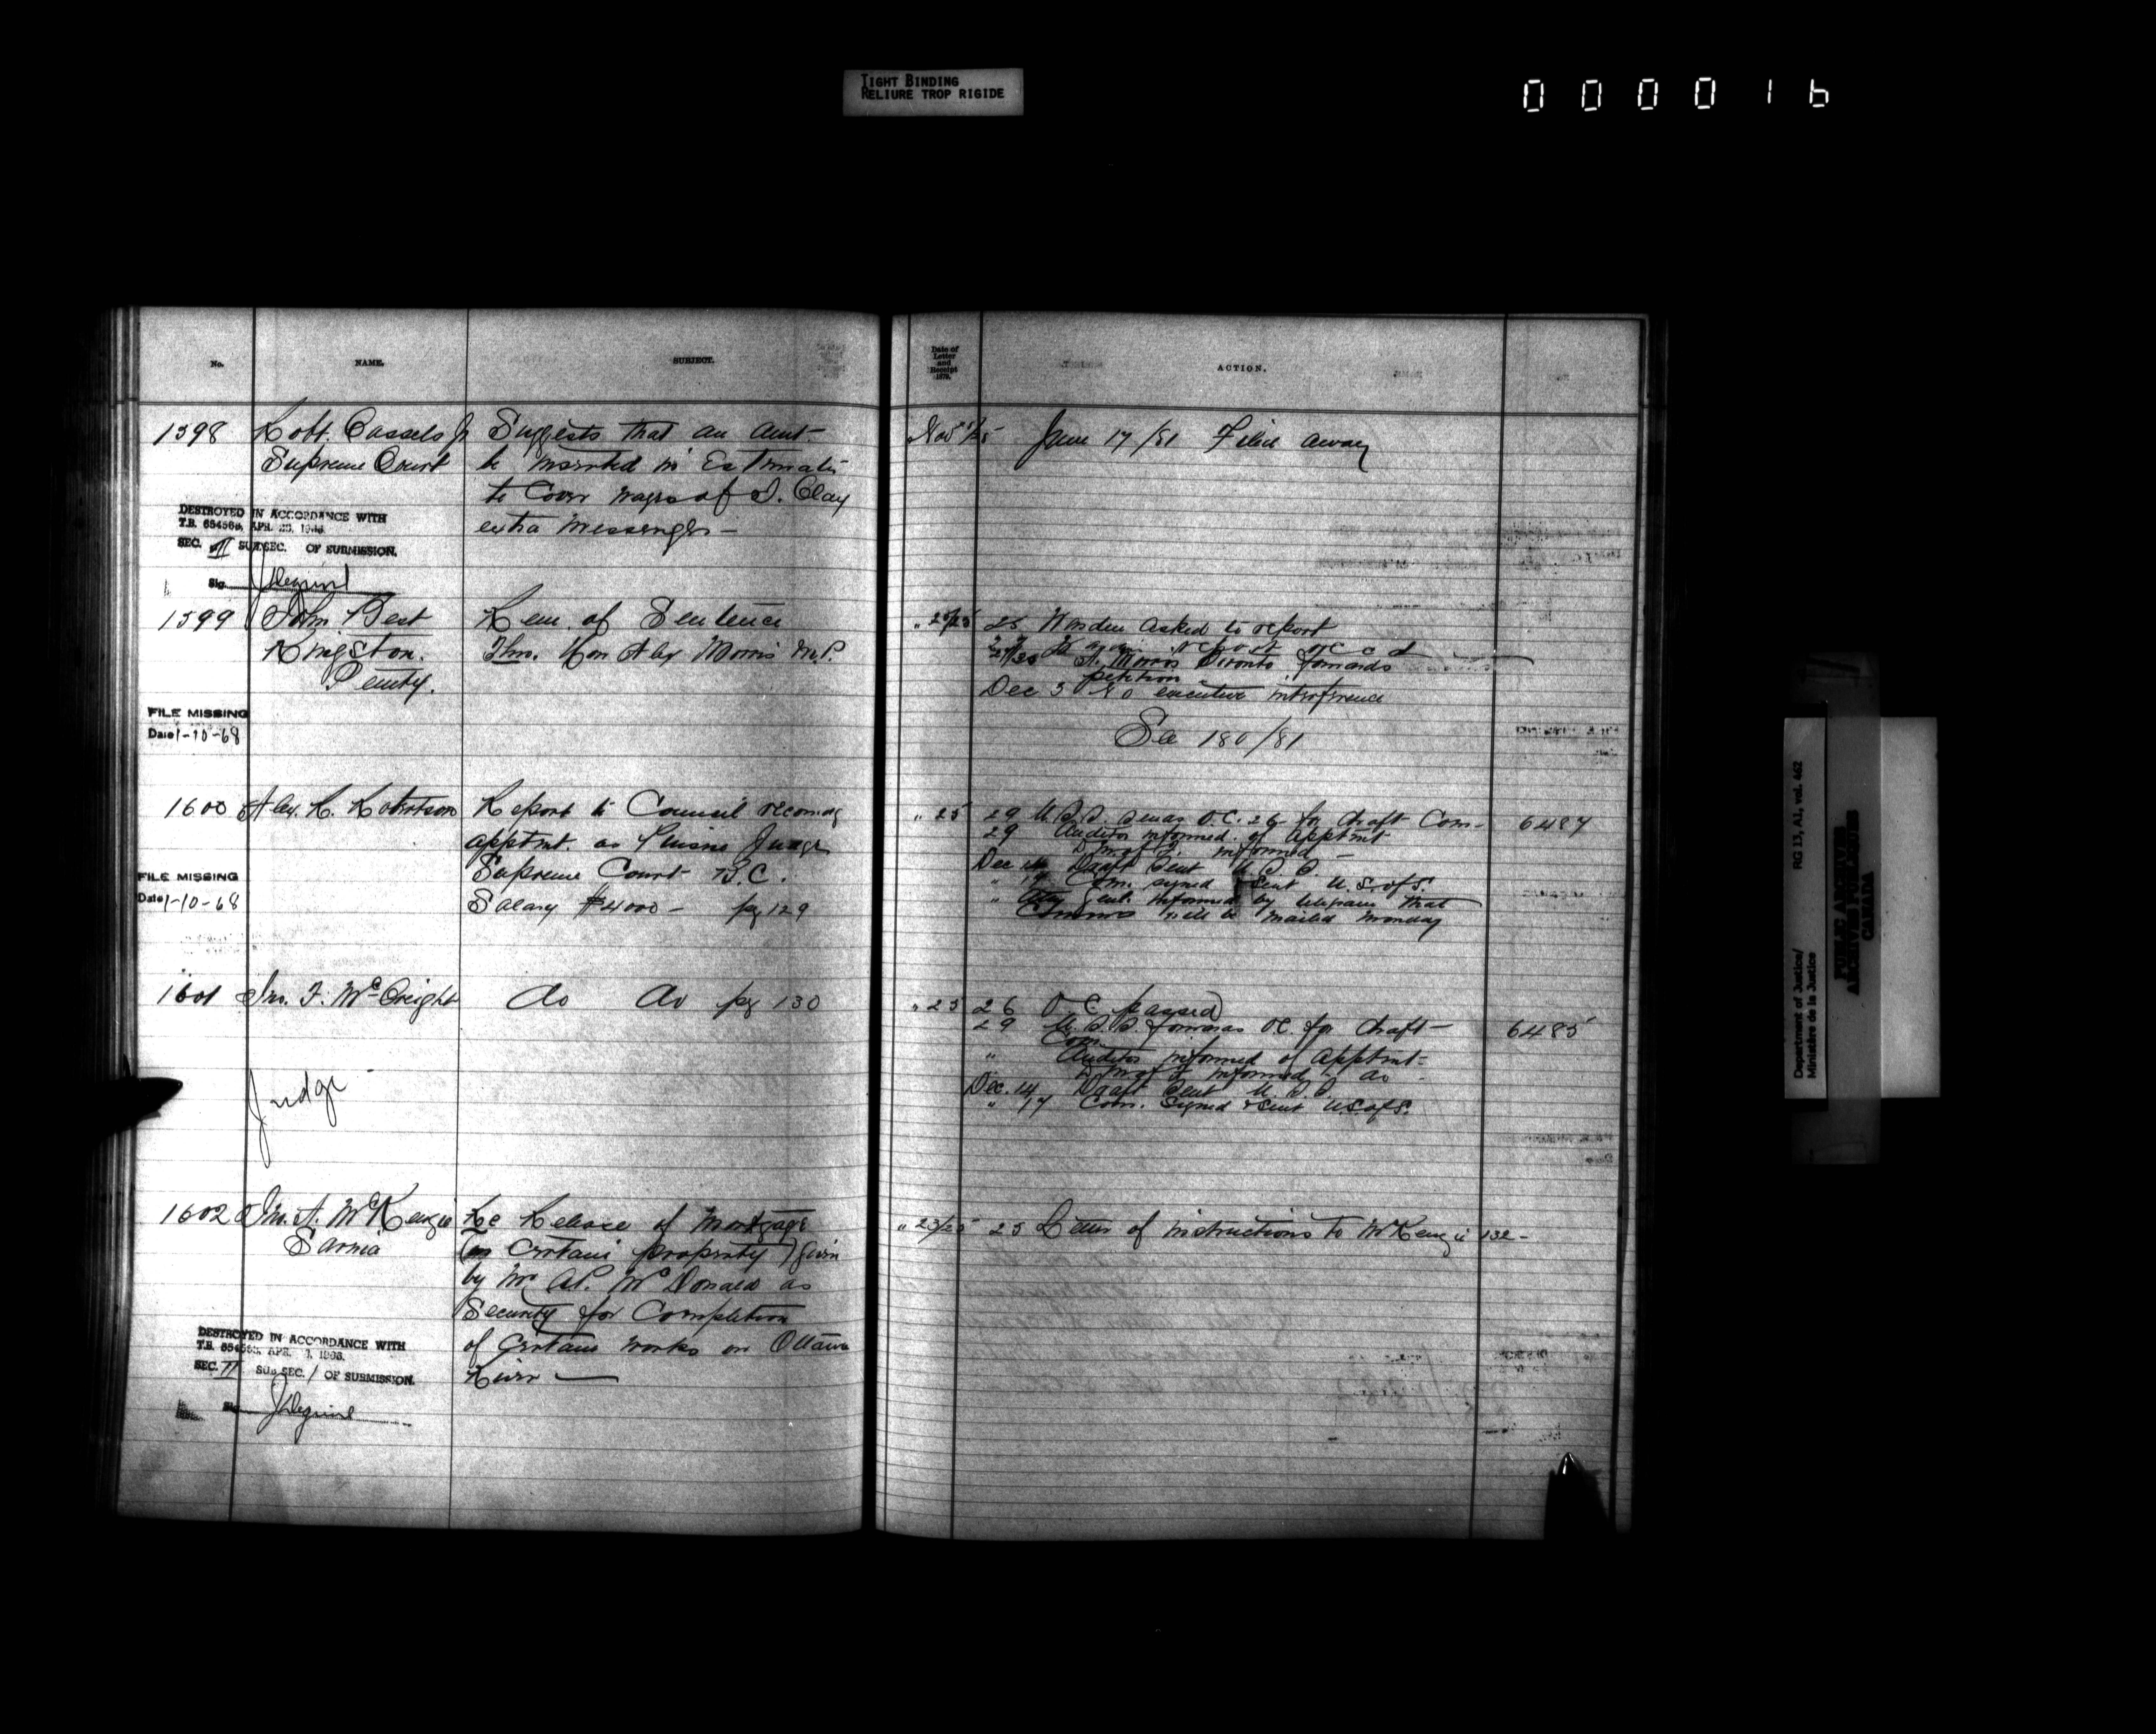 TIGHT BINDING
RELIURE TROP RIGIDE
000016
No. NAME. SUBJECT.
Date of
Letter
and
Receipt
1879.
ACTION.
1598 Robt. Cassels Jr Suggests that an amt-
Supreme Court be inserted in Estimates
to cover wages of J. Clay
extra messenger -
DESTROYED IN ACCORDANCE WITH
T.B. APR.
SEC. II SUBSEC. OF SUBMISSION.
Sig.
Nov /25 June 17/81 Filed away
1599 John Best Rem. of Sentence
Kingston. Thro. Hon Alex Morris M.P.
Penity.
FILE MISSING
Date 1-10-68
" 25 Warden asked to report
report recd
A. Morris Toronto forwards
petition
Dec 3 No executive interference
See 180/81
1600 Alex. R. Robertson Report to Council recomdg
apptmt. as Puisne Judge
Supreme Court B.C.
Salary $4000 - pg 129
FILE MISSING
Date 1-10-68
" 25 29 U.S.S. sends O.C. 26 for draft Com- 6487
29 Auditor informed of apptmt
informed -
Dec 14 Draft sent U.S.S.
" 17 Com. signed & sent U.S. of S.
" Atty Genl. informed by telegram that
Comms will be mailed Monday
1601 Jno. F. McCreight Do Do pg 130
Judge
" 25 26 O C passed
29 U.S.S. forwards O.C. for draft- 6485
Com.
" Auditor informed of apptmt-
informed do -
Dec. 14 Draft sent U.S.S.
" 17 Com. signed & sent U.S. of S.
1602 Jno. A. McKenzie Re Release of Mortgage
Sarnia (on certain property) given
by Mr A.P. McDonald as
Security for Completion
of certain works on Ottawa
River -
DESTROYED IN ACCORDANCE WITH
T.B. APR.
SEC. II SUB SEC. 1 OF SUBMISSION.
Sig.
" 23/25 25 Letter of instructions to McKenzie 132-
Department of Justice/
Ministère de la Justice
RG 13, A1, vol. 462
PUBLIC ARCHIVES
ARCHIVES PUBLIQUES
CANADA